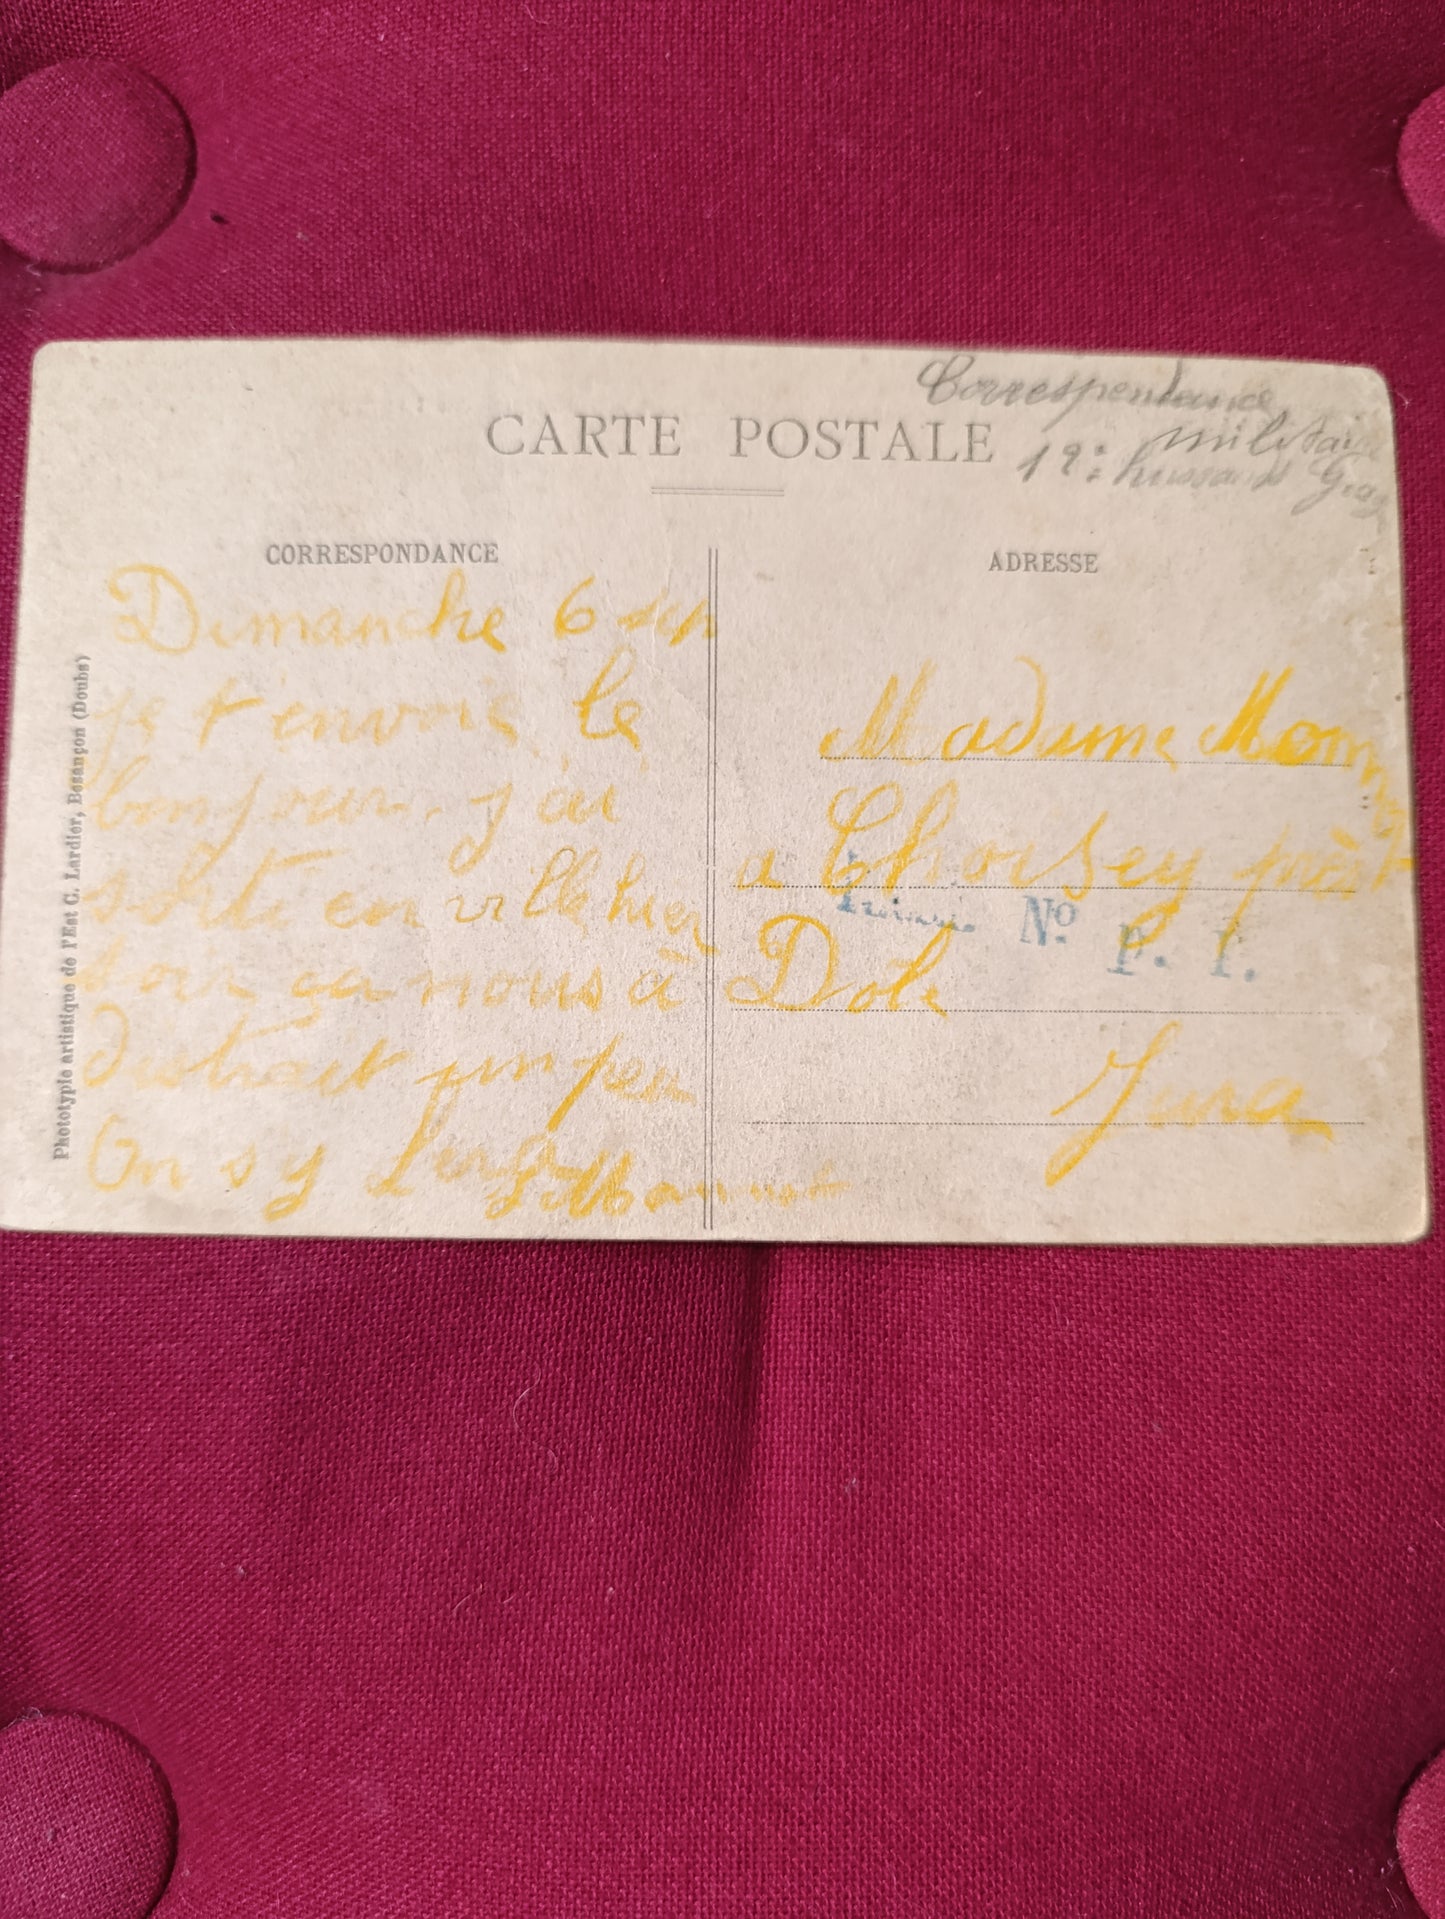 Correspondance
militaire
12e hussards Gray
CARTE POSTALE
CORRESPONDANCE
ADRESSE
Dimanche 6 sep
je t'envoie le
bonjour. j'ai
en ville hier
soir ça nous à
distrait un peu
On s y
Madame
a Choisey près
Dole
Jura
No F. 1.
Phototypie artistique de l'Est C. Lardier, Besançon (Doubs)